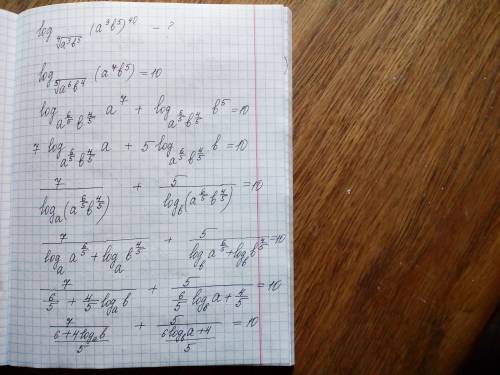 log_{\sqrt[4]{a^3b^5}} (a^3b^5)^{40} - ?
log_{\sqrt[5]{a^6b^4}} (a^7b^5) = 10
log_{a^{6/5}b^{4/5}} a^7 + log_{a^{6/5}b^{4/5}} b^5 = 10
7 log_{a^{6/5}b^{4/5}} a + 5 log_{a^{6/5}b^{4/5}} b = 10
7/(log_a(a^{6/5}b^{4/5})) + 5/(log_b(a^{6/5}b^{4/5})) = 10
7/(log_a a^{6/5} + log_a b^{4/5}) + 5/(log_b a^{6/5} + log_b b^{4/5}) = 10
7/(6/5 + 4/5 log_a b) + 5/(6/5 log_b a + 4/5) = 10
7/((6+4log_a b)/5) + 5/((6log_b a+4)/5) = 10